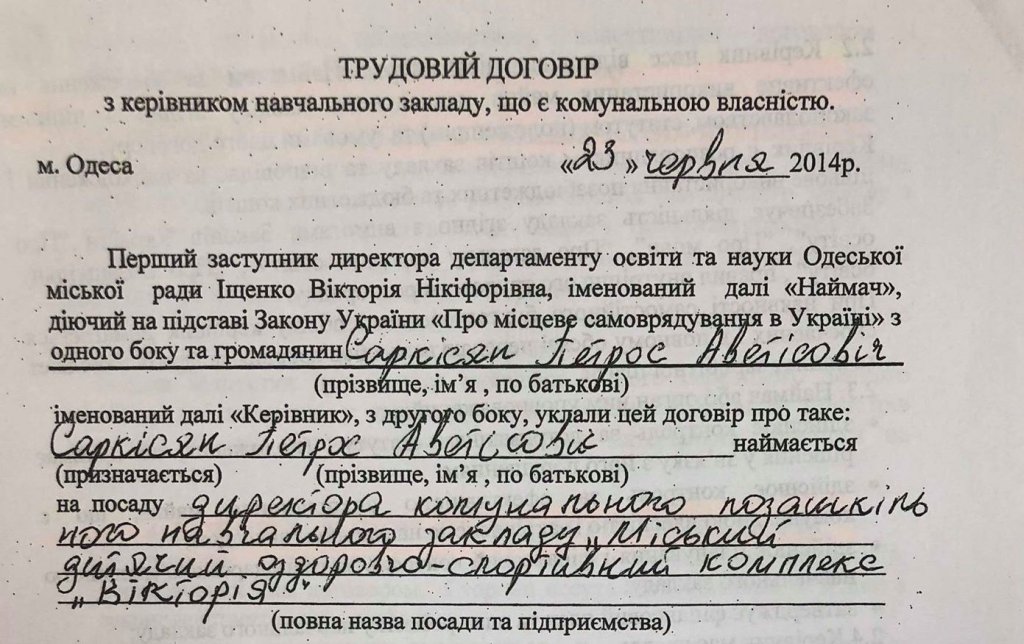 ТРУДОВИЙ ДОГОВІР
з керівником навчального закладу, що є комунальною власністю.
м. Одеса «23» червня 2014р.
Перший заступник директора департаменту освіти та науки Одеської
міської ради Іщенко Вікторія Нікіфорівна, іменований далі «Наймач»,
діючий на підставі Закону України «Про місцеве самоврядування в Україні» з
одного боку та громадянин Саркісян Петрос Аветісовіч
(прізвище, ім'я , по батькові)
іменований далі «Керівник», з другого боку, уклали цей договір про таке:
Саркісян Петрос Аветісовіч наймається
(призначається) (прізвище, ім'я , по батькові)
на посаду директора комунального позашкіль
ного навчального закладу „Міський
дитячий оздоровчо-спортивний комплекс
„Вікторія"
(повна назва посади та підприємства)